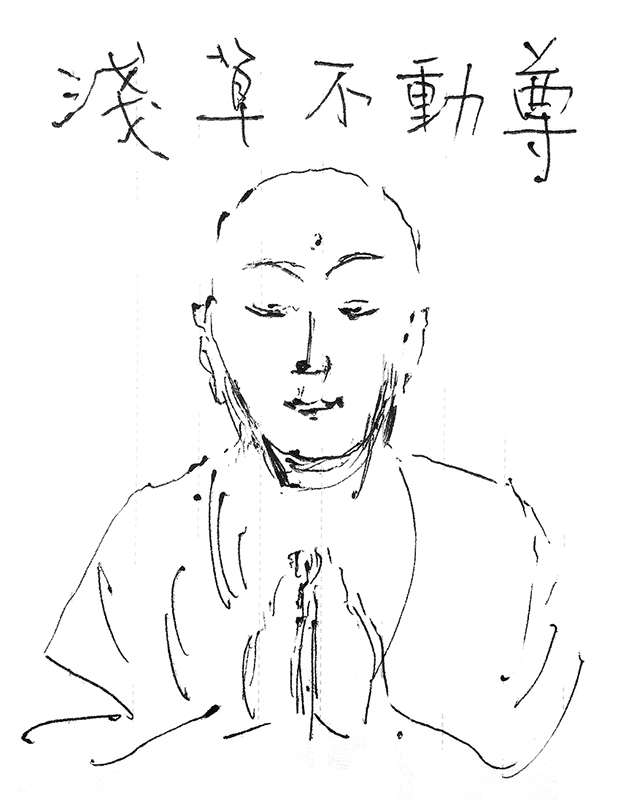 淺草不動尊